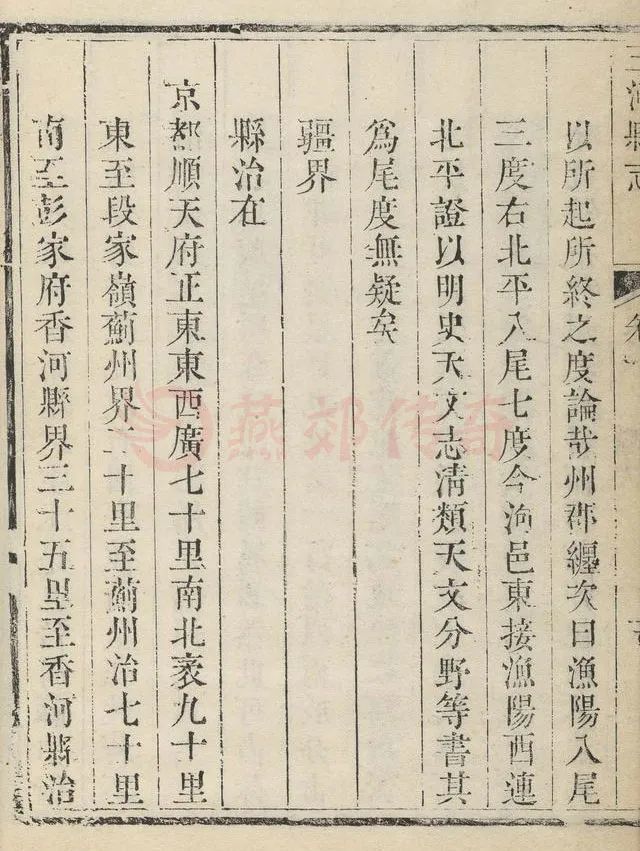 三河縣志
以所起所終之度論哉州郡纏次曰漁陽入尾
三度右北平入尾七度今泃邑東接漁陽西連
北平證以明史天文志清類天文分野等書其
為尾度無疑矣
疆界
縣治在
京都順天府正東東西廣七十里南北袤九十里
東至段家嶺薊州界二十里至薊州治七十里
南至彭家府香河縣界三十五里至香河縣治
燕郊传奇